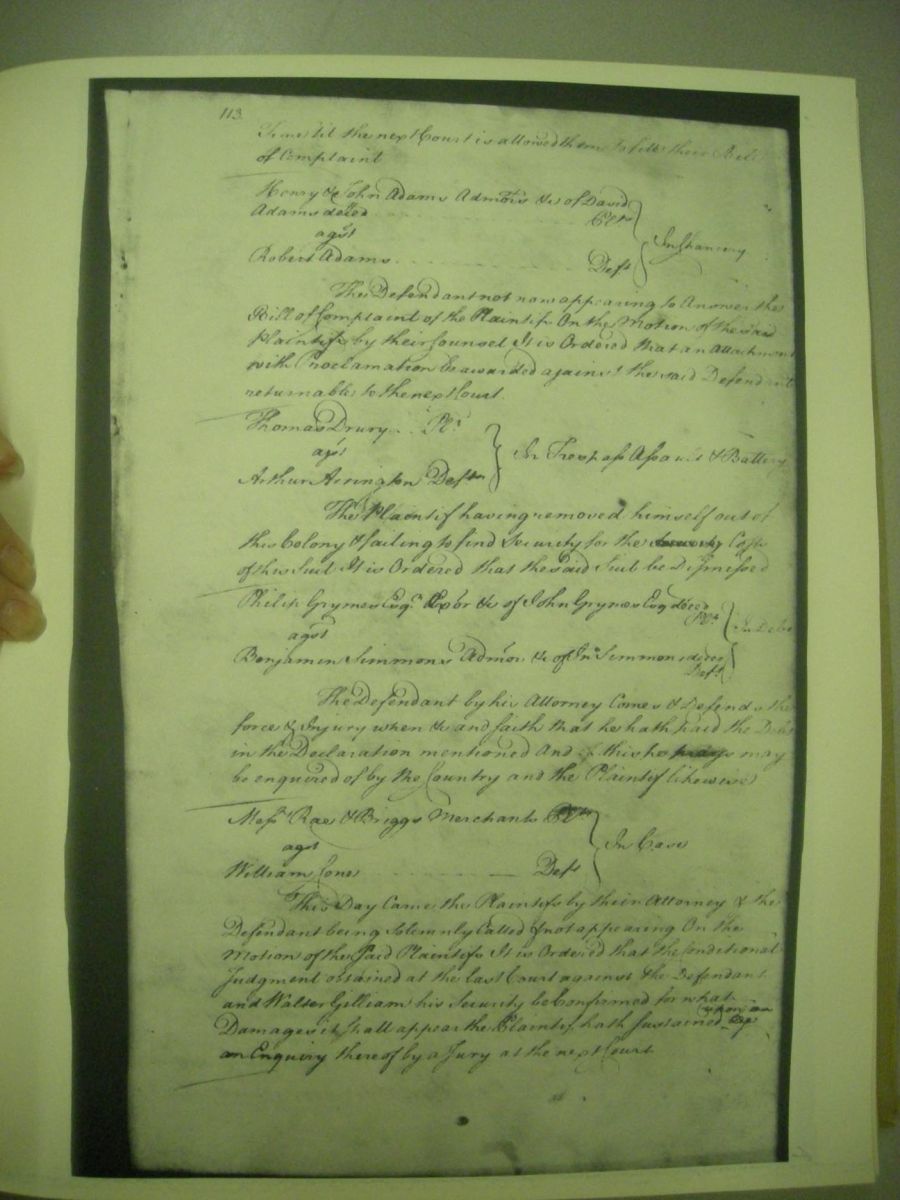 113
Time til the next Court is allowed them to file their Bill
of Complaint
Henry & John Adams Admors &c of David
Adams deced Plts
agst In Chancery
Robert Adams Deft
The Defendant not now appearing to Answer the
Bill of Complaint of the Plaintifs On the Motion of the said
Plaintifs by their Counsel It is Ordered that an Attachment
with Proclamation be awarded against the said Defendant
returnable to the next Court.
Thomas Drury Plt
agst In Trespass Assault & Battery
Arthur Arrington Deft
The Plaintif having removed himself out of
this Colony & failing to find Security for the Costs
of this Suit It is Ordered that the said Suit be Dismissed
Philip Grymes Esqr Exor &c of John Grymes Esq deced
Plt In Debt
agst
Benjamin Simmons Admor &c of Jno Simmons deced
Deft
The Defendant by his Attorney Comes & Defends the
force & Injury when &c and saith that he hath paid the Debt
in the Declaration mentioned And of this he prays may
be enquired of by the Country and the Plaintif likewise
Messrs Rae & Briggs Merchants Plts
agst In Case
William Cone Deft
This Day Came the Plaintifs by their Attorney & the
Defendant being Solemnly Called & not appearing On the
Motion of the said Plaintifs It is Ordered that the Conditional
Judgment obtained at the last Court against the Defendant
and Walter Gilliam his Security be Confirmed for what
upon an
Damages it shall appear the Plaintif hath Sustained
an Enquiry thereof by a Jury at the next Court